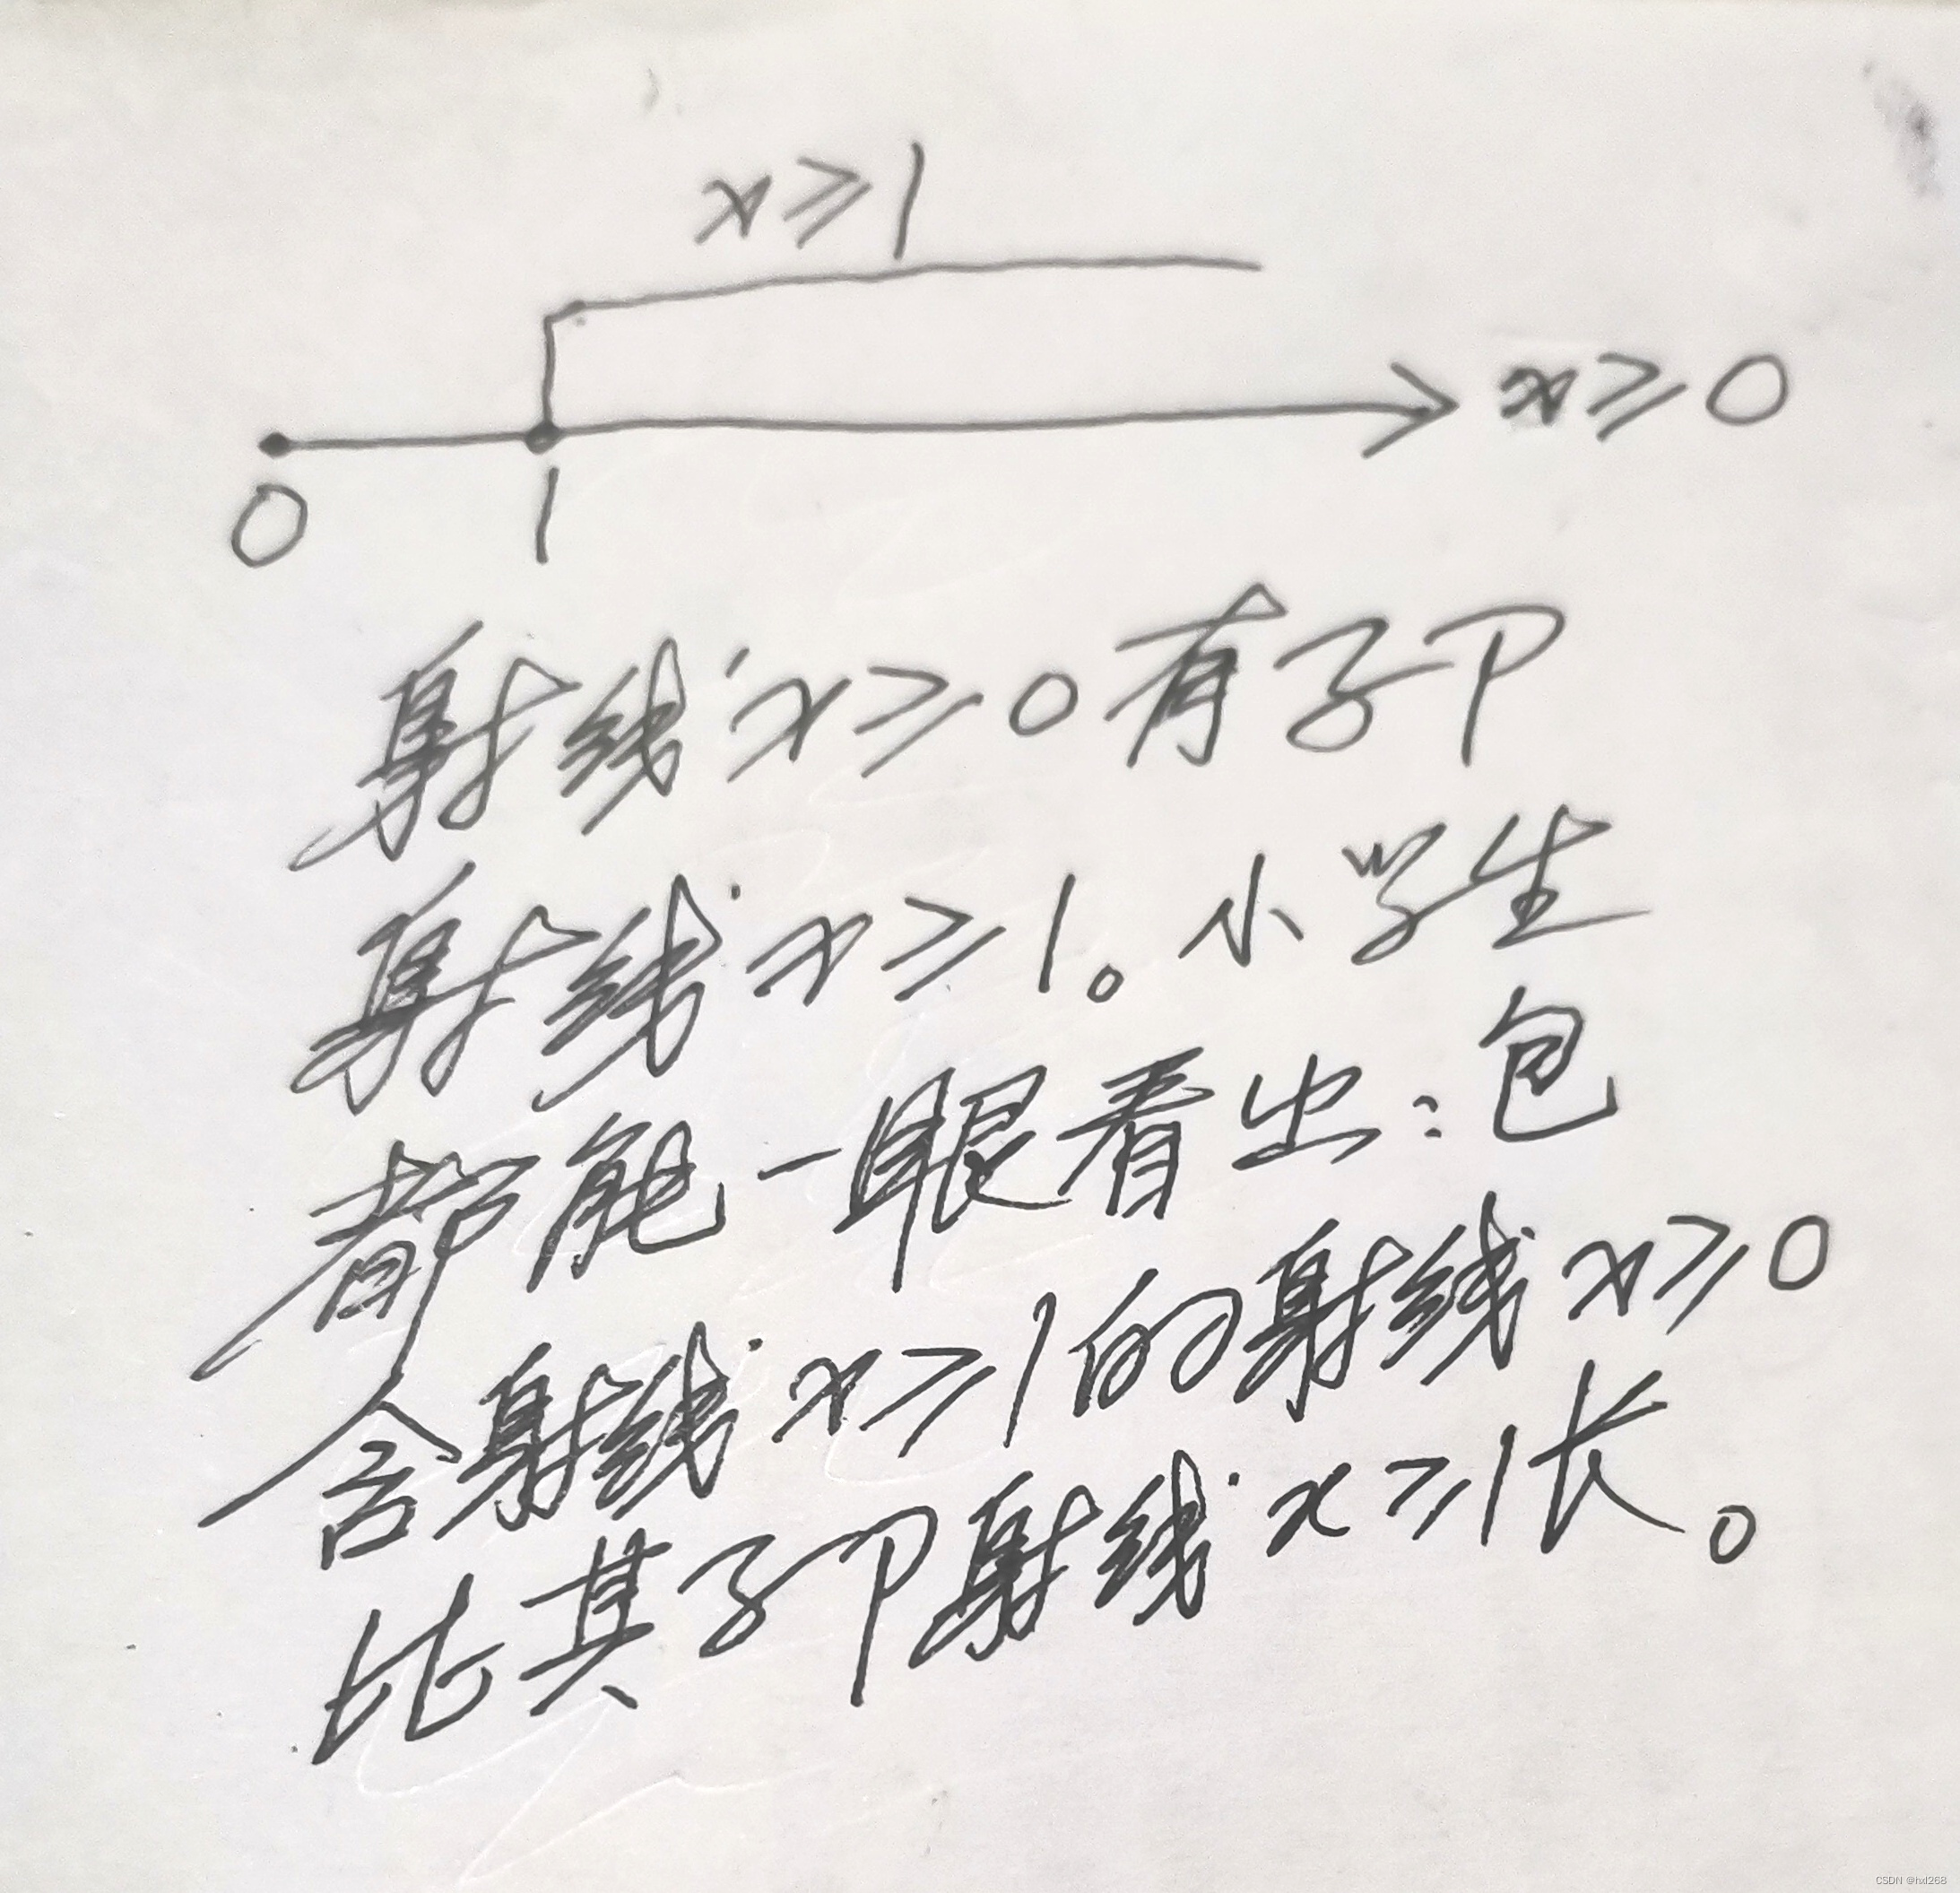 x≥1
x≥0
0 1
射线x≥0有子P
射线x≥1。小学生
都能一眼看出:包
含射线x≥1的射线x≥0
比其子P射线x≥1长。
CSDN @hxl268